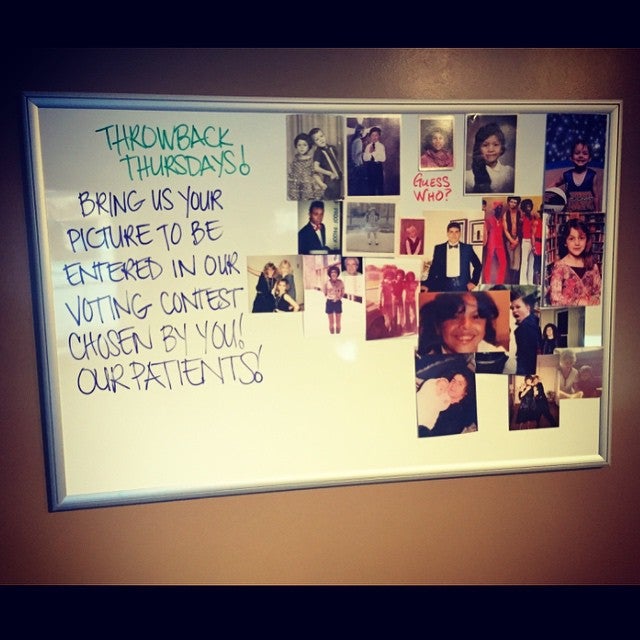 THROWBACK
THURSDAYS!
BRING US YOUR
PICTURE TO BE
ENTERED IN OUR
VOTING CONTEST
CHOSEN BY YOU!
OUR PATIENTS!
GUESS
WHO?